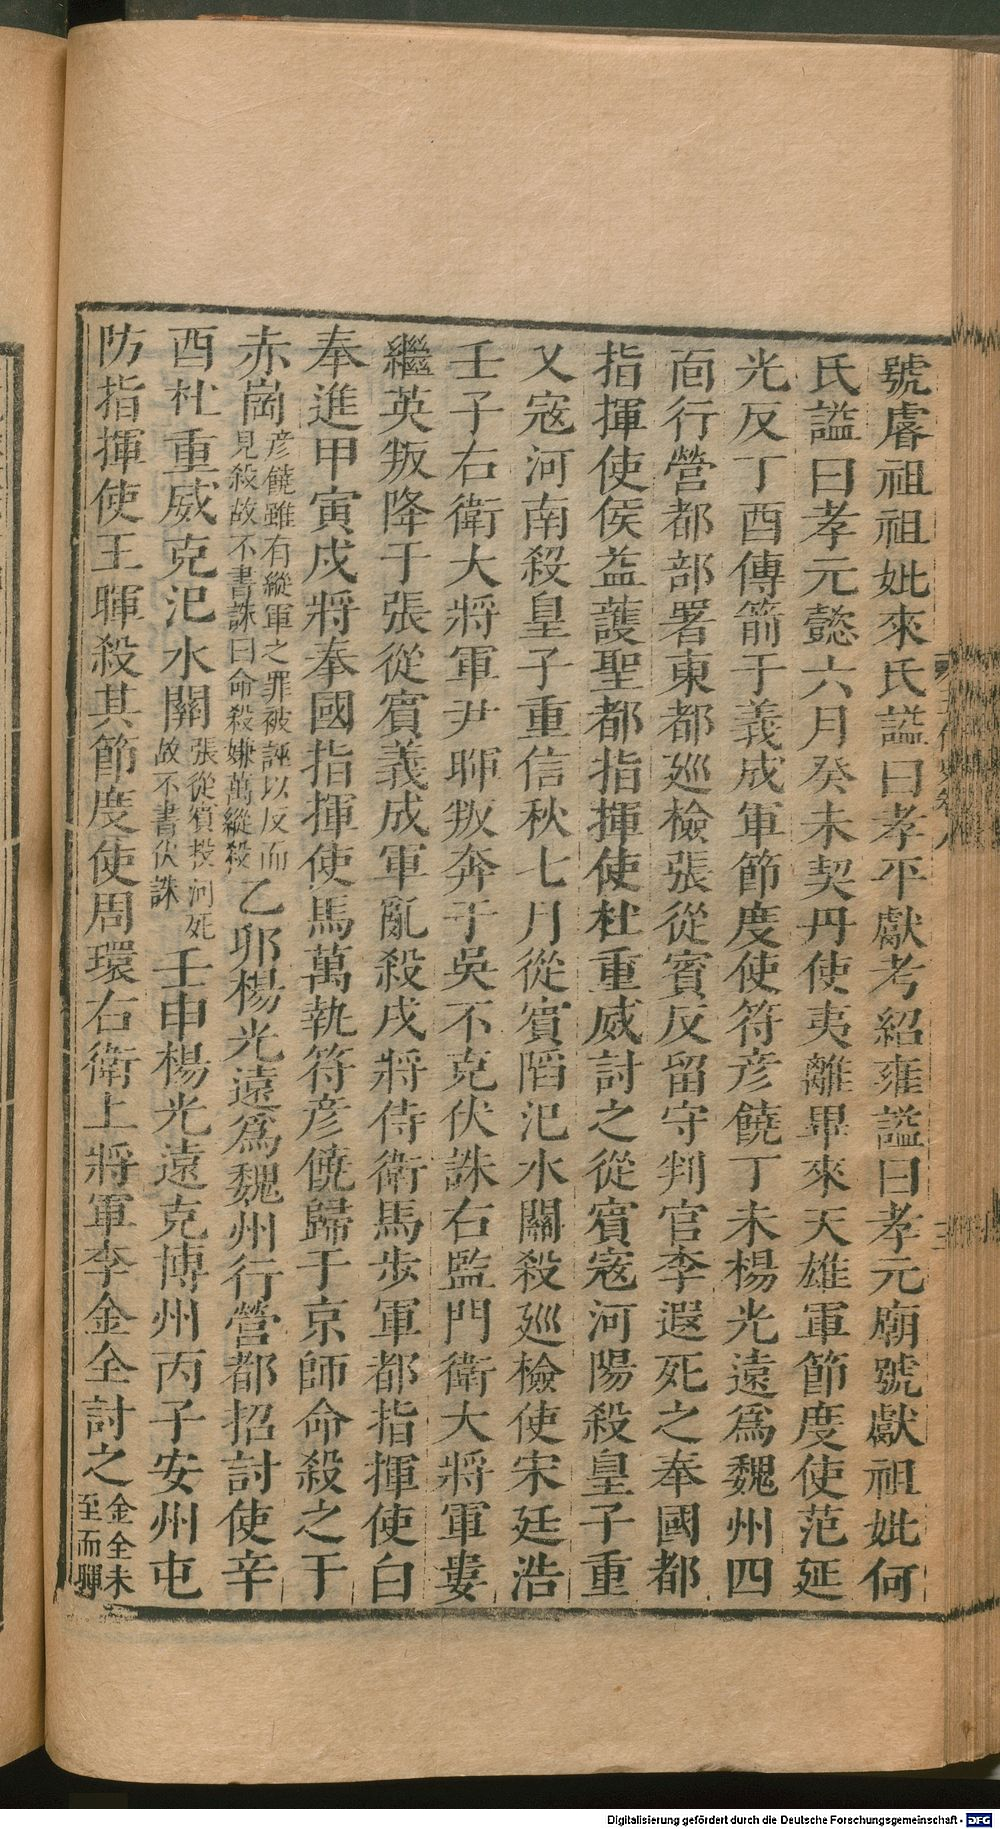 號睿祖祖妣來氏謚曰孝平獻考紹雍謚曰孝元廟號獻祖妣何
氏謚曰孝元懿六月癸未契丹使夷離畢來天雄軍節度使范延
光反丁酉傳箭于義成軍節度使符彦饒丁未楊光遠爲魏州四
面行營都部署東都廵檢張從賓反留守判官李遐死之奉國都
指揮使侯益護聖都指揮使杜重威討之從賓宼河陽殺皇子重
又宼河南殺皇子重信秋七月從賓陷汜水關殺廵檢使宋廷浩
壬子右衛大將軍尹暉叛奔于吳不克伏誅右監門衛大將軍婁
繼英叛降于張從賓義成軍亂殺戍將侍衛馬步軍都指揮使白
奉進甲寅戍將奉國指揮使馬萬執符彦饒歸于京師命殺之于
赤崗彦饒雖有縱軍之罪被誣以反而見殺故不書誅曰命殺嫌萬縱殺乙夘楊光遠爲魏州行營都招討使辛
酉杜重威克汜水關張從賓投河死故不書伏誅壬申楊光遠克博州丙子安州屯
防指揮使王暉殺其節度使周瓌右衛上將軍李金全討之金全未至而暉
五代史卷八
三
Digitalisierung gefördert durch die Deutsche Forschungsgemeinschaft - DFG